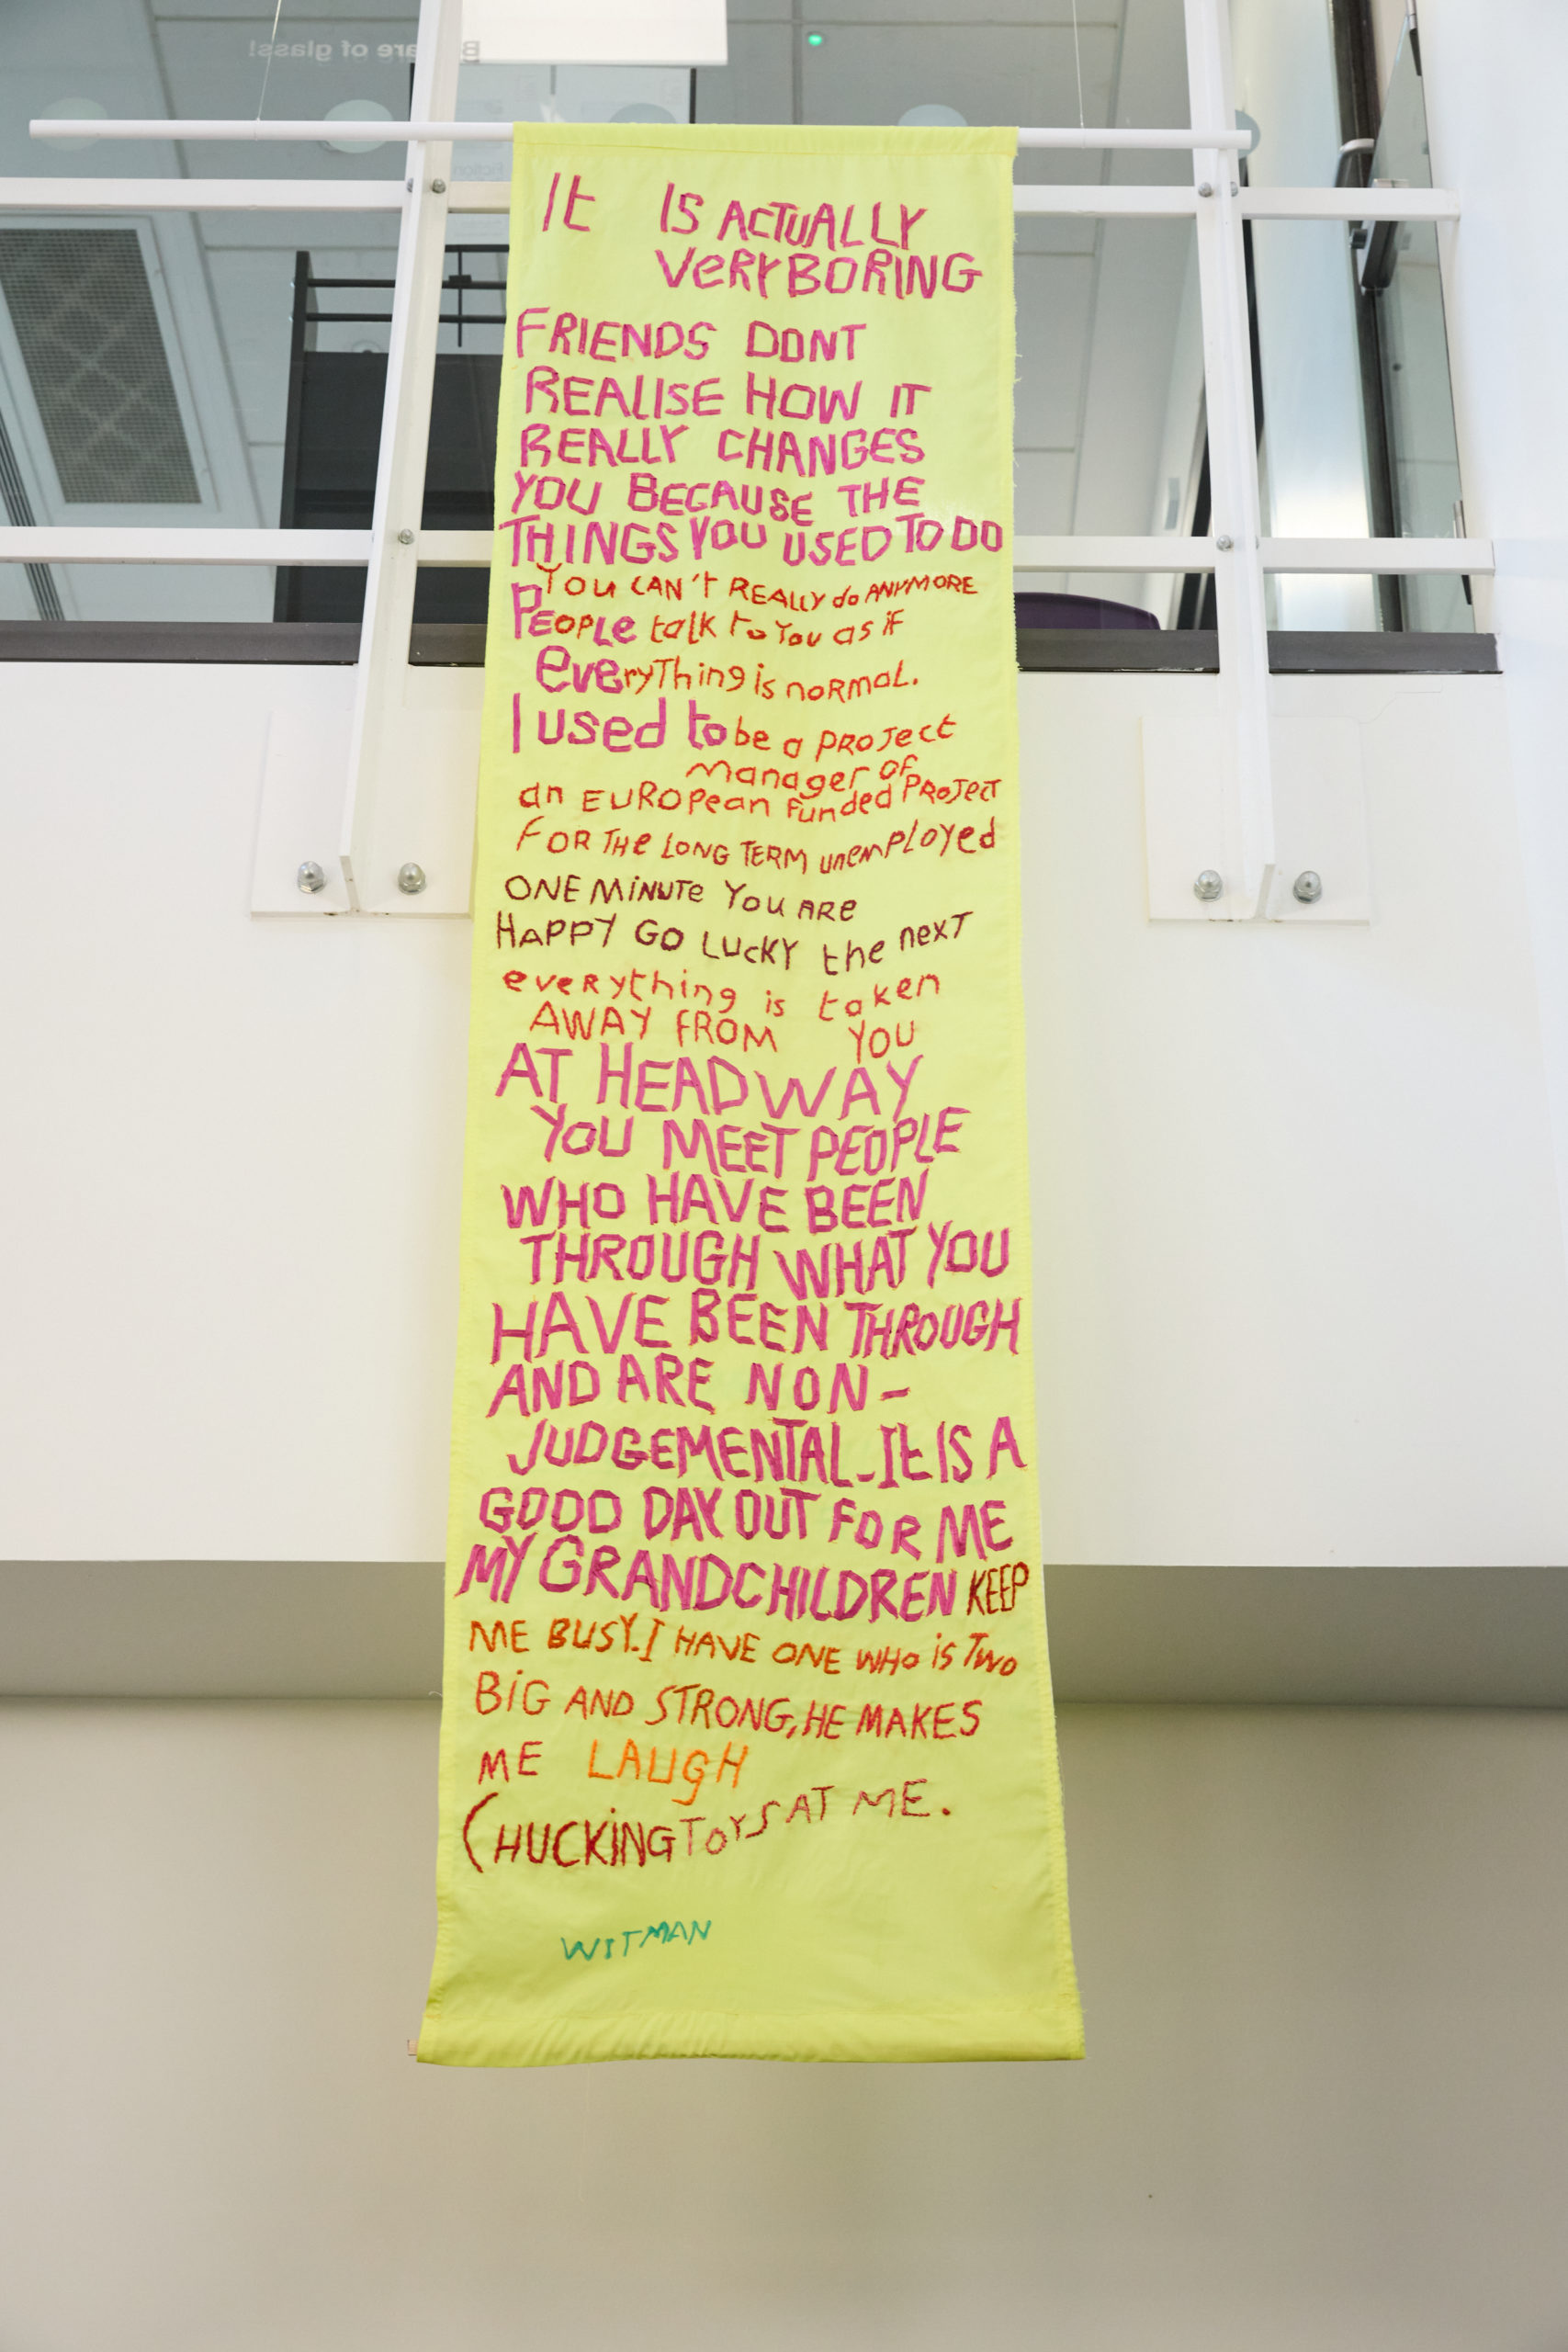 Beware of glass!
It IS ACTUALLY
VeRY BORING
FRIENDS DONT
REALISE HOW IT
REALLY CHANGES
YOU BECAUSE THE
THINGS YOU USED TO DO
YOU CAN'T REALLY do ANYMORE
PEOPLe talk to You as iF
everyThing is noRMaL.
I used to be a PROJect
manager OF
an EUROPean Funded PROJecT
FOR THe LONG TERM unemPloyed
ONE MiNUTe YOU ARe
HAPPY GO LUcKY the nexT
eveRything is taken
AWAY FROM YOU
AT HEADWAY
YOU MEET PEOPLE
WHO HAVE BEEN
THROUGH WHAT YOU
HAVE BEEN THROUGH
AND ARE NON-
JUDGEMENTAL. It IS A
GOOD DAY OUT FOR ME
MY GRANDCHILDREN KEEP
ME BUSY. I HAVE ONE WHo is Two
BiG AND STRONG, HE MAKES
ME LAUGH
CHUCKiNG ToYS AT ME.
WITMAN